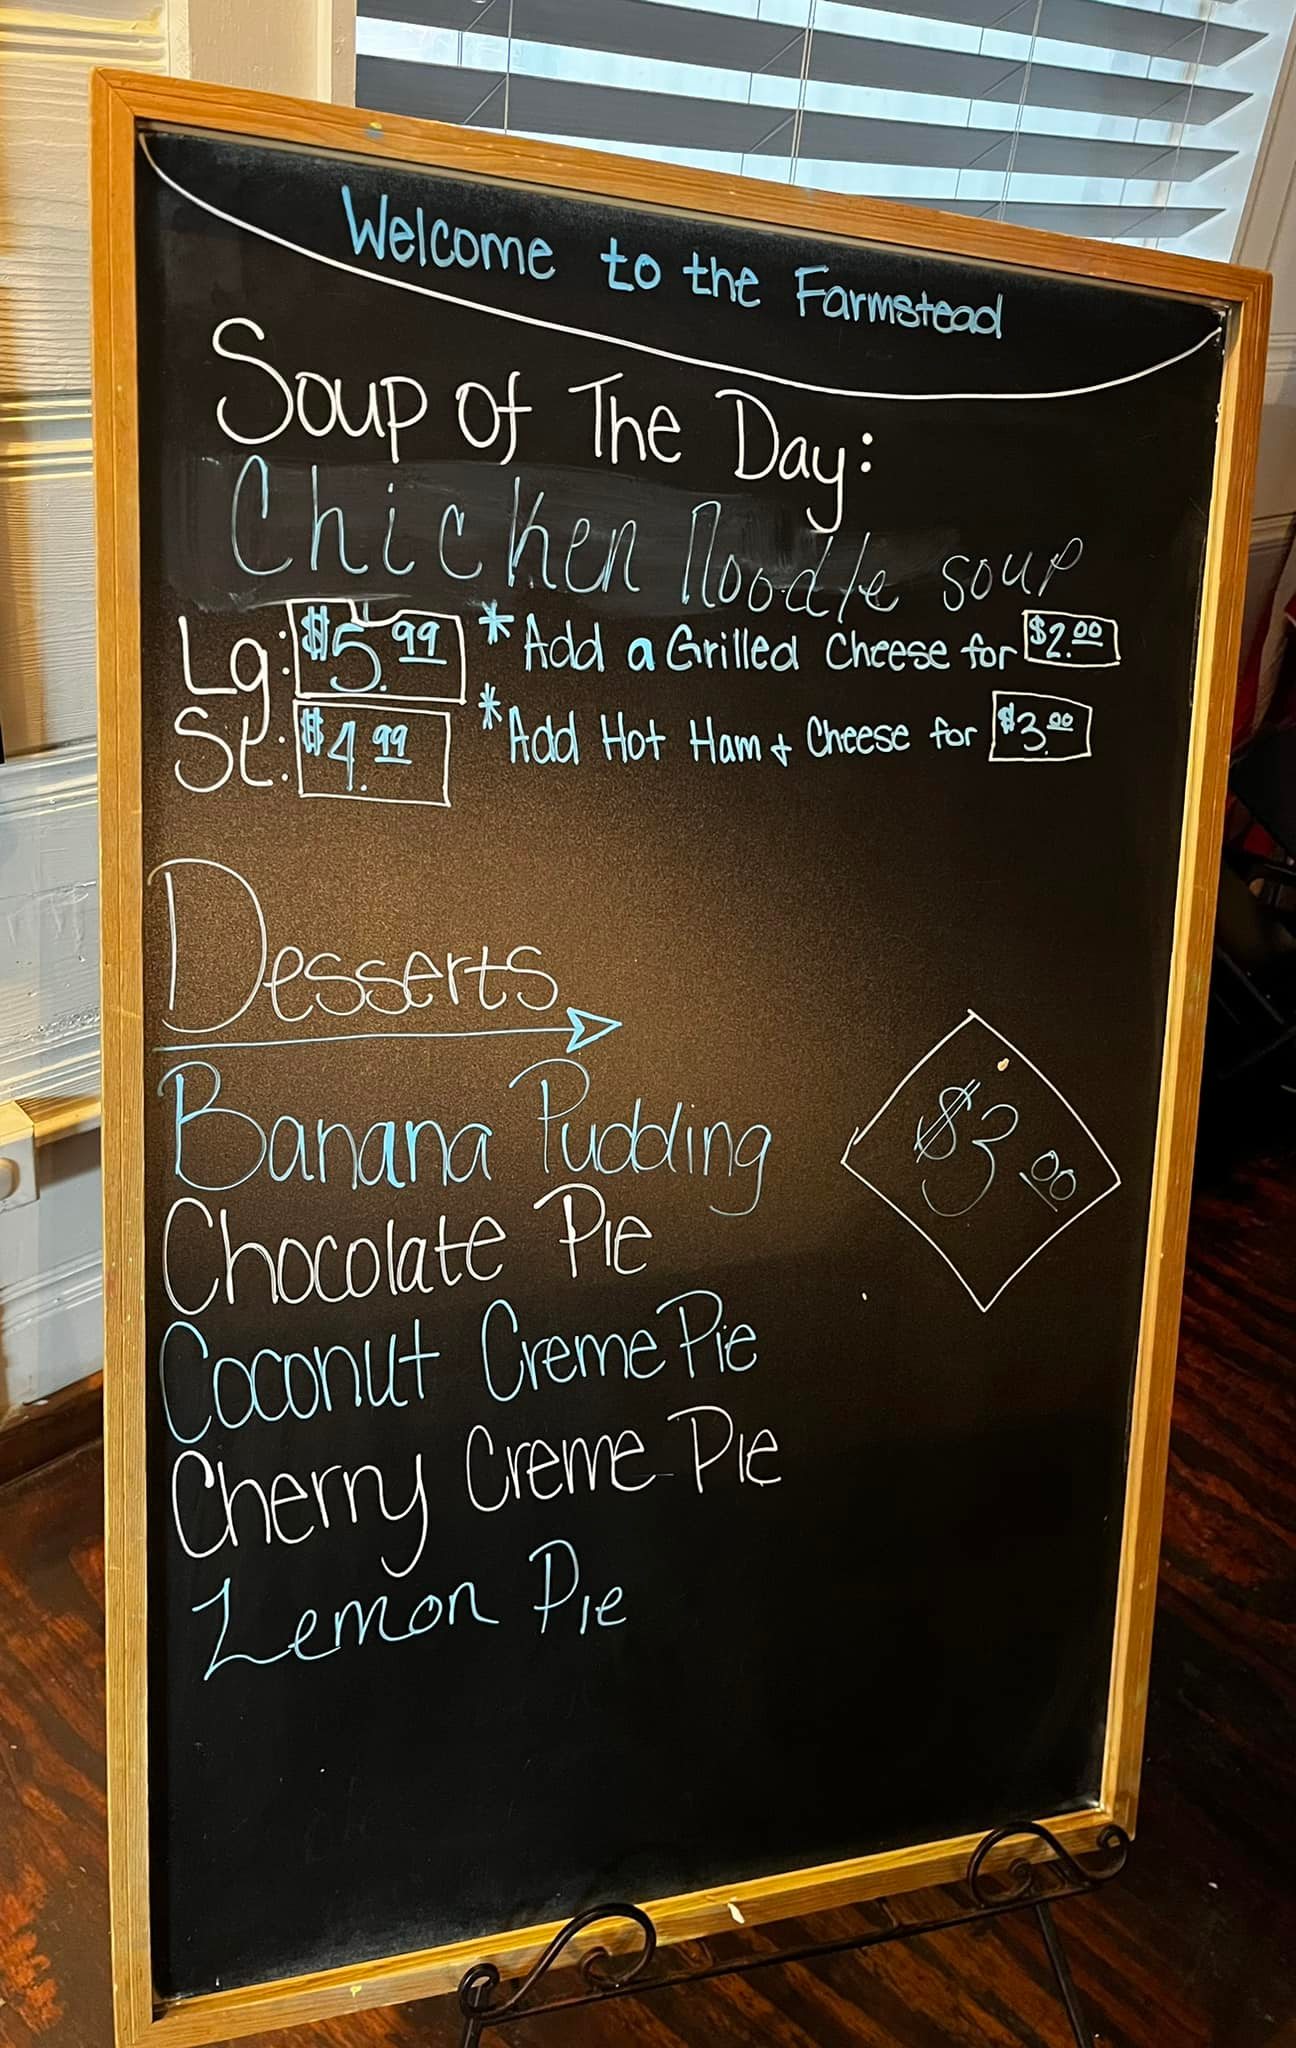 Welcome to the Farmstead
Soup Of The Day:
Chicken Noodle soup
Lg: $5.99 *Add a Grilled Cheese for $2.00
St: $4.99 *Add Hot Ham + Cheese for $3.00
Desserts
Banana Pudding
$3.00
Chocolate Pie
Coconut Creme Pie
Cherry Creme Pie
Lemon Pie